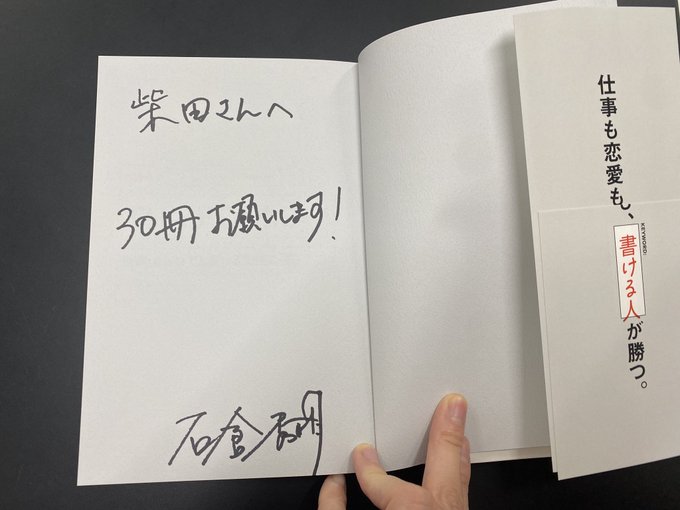 柴田さんへ
30冊お願いします!
石倉秀明
仕事も恋愛も、
KEYWORD:
書ける人が勝つ。